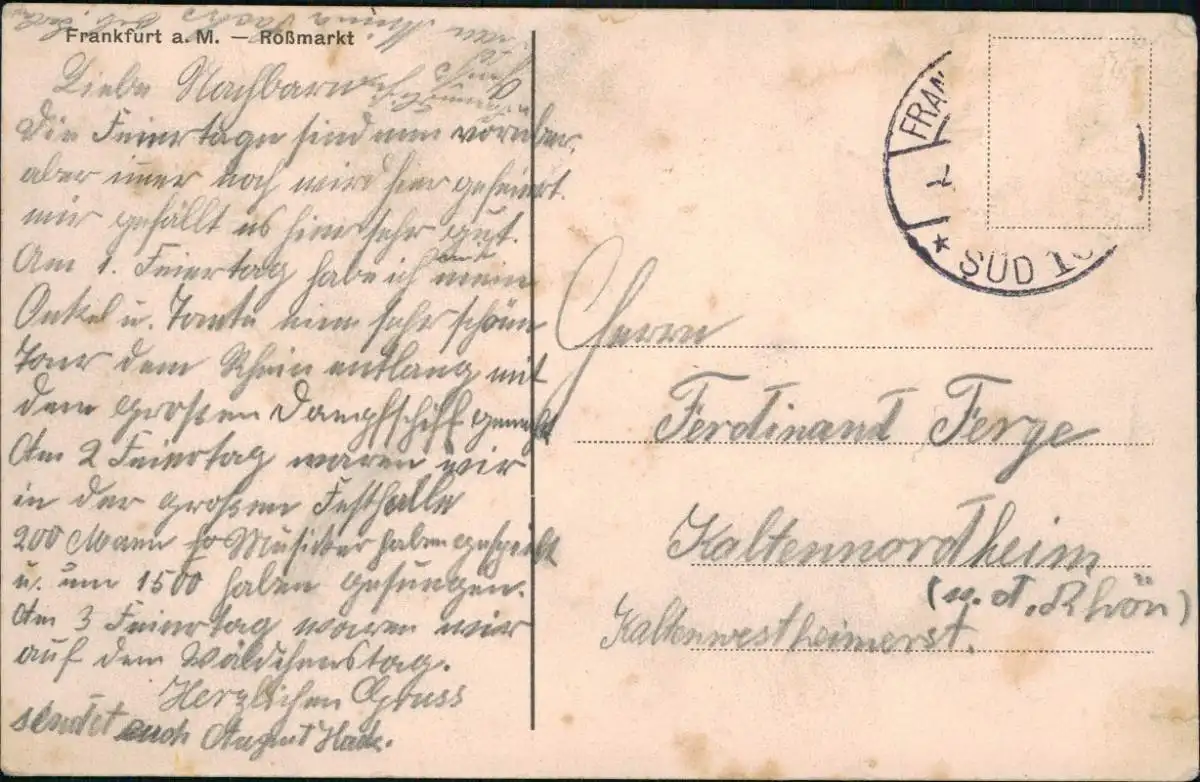 Frankfurt a. M. — Roßmarkt
Liebe Nachbarn
Die Feiertage sind nun vorüber,
aber immer noch wird hier gefeiert.
mir gefällt es hier sehr gut.
Am 1. Feiertag habe ich mit mein
Onkel u. Tante eine sehr schöne
Tour dem Rhein entlang mit
dem grossen Dampfschiff gemacht
Am 2 Feiertag waren wir
in der grossen Festhalle
200 Mann Musicker haben gespielt
u. um 1500 haben gesungen.
Am 3 Feiertag waren wir
auf dem Wäldchenstag.
Herzlichen Gruss
sendet euch August Hack.
FRAN
SÜD 10
Herrn
Ferdinand Ferge
Kaltennordheim
(v. d. Rhön)
Kaltenwestheimerst.